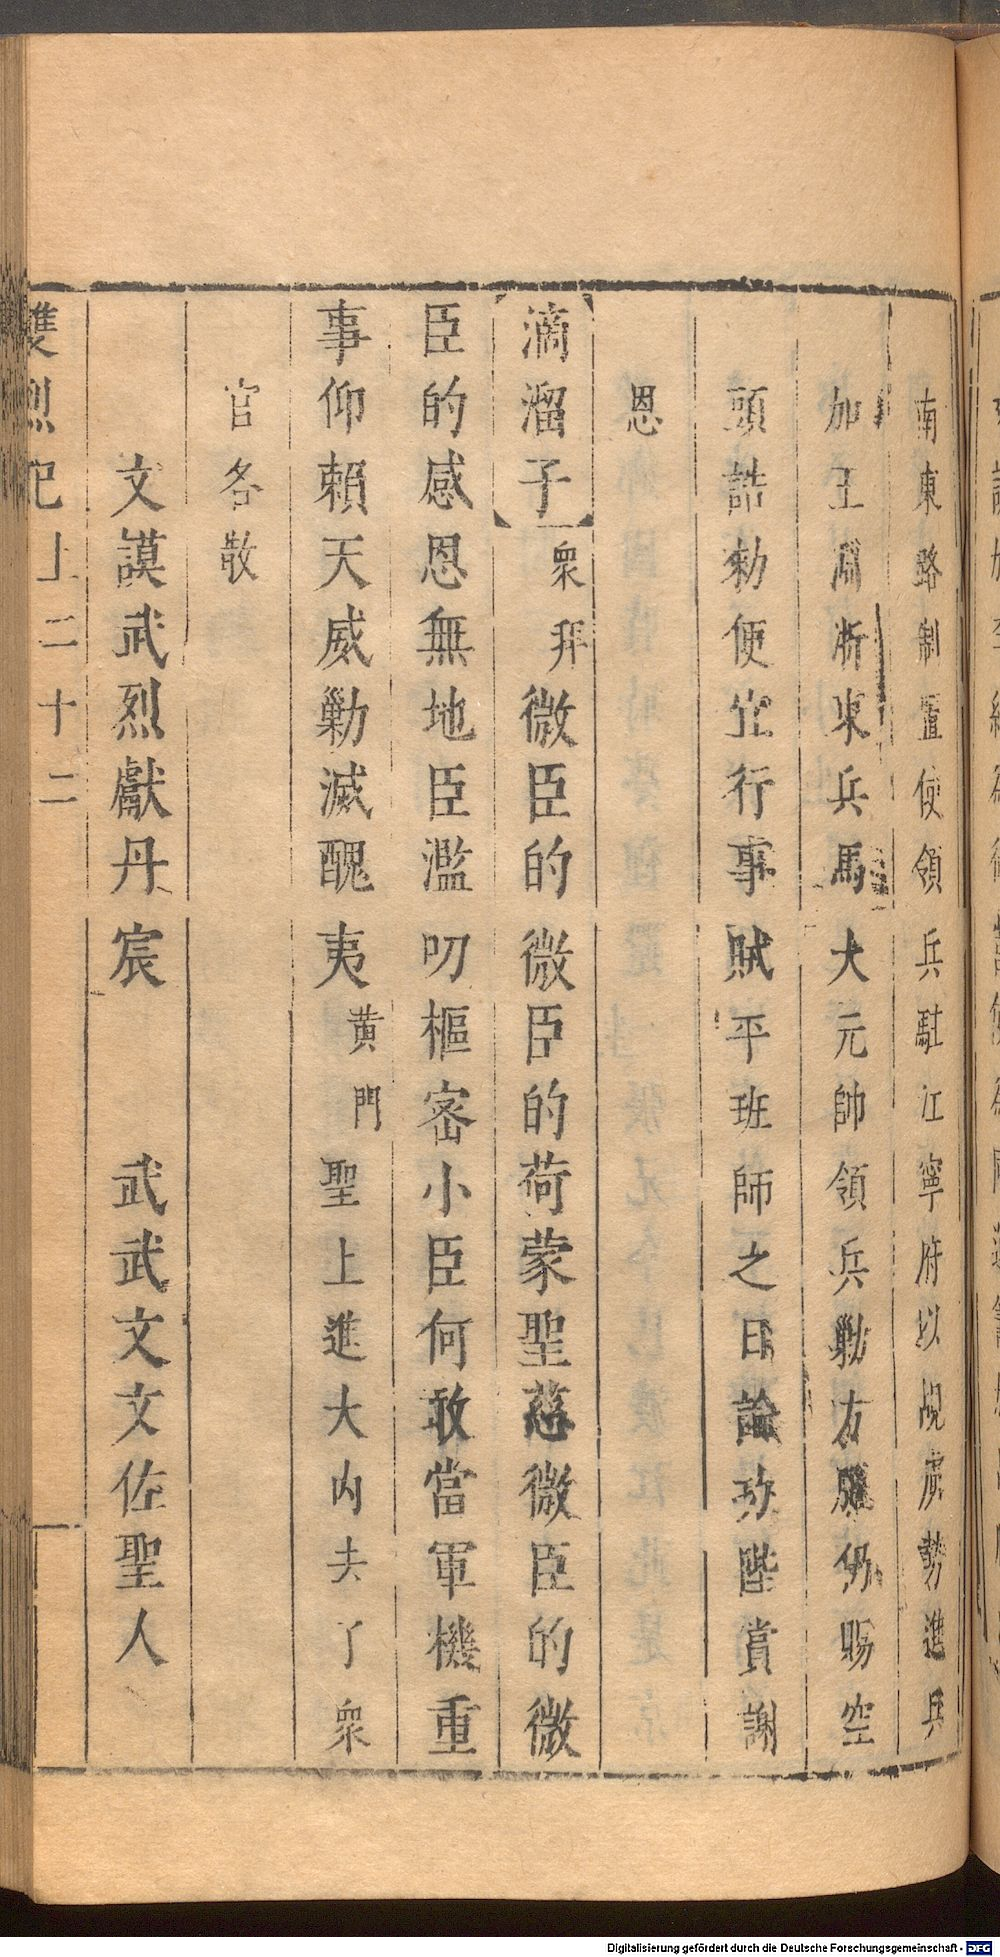 南東路制置使領兵駐江寧府以覘虜勢進兵
加王淵浙東兵馬大元帥領兵勦方臘仍賜空
頭誥勅便宜行事賊平班師之日論功陞賞謝
恩
【滴溜子】衆拜微臣的微臣的荷蒙聖慈微臣的微
臣的感恩無地臣濫叨樞密小臣何敢當軍機重
事仰賴天威勦滅醜夷黃門聖上進大內去了衆
官各散
文謨武烈獻丹宸 武武文文佐聖人
雙烈記上二十二
Digitalisierung gefördert durch die Deutsche Forschungsgemeinschaft - DFG